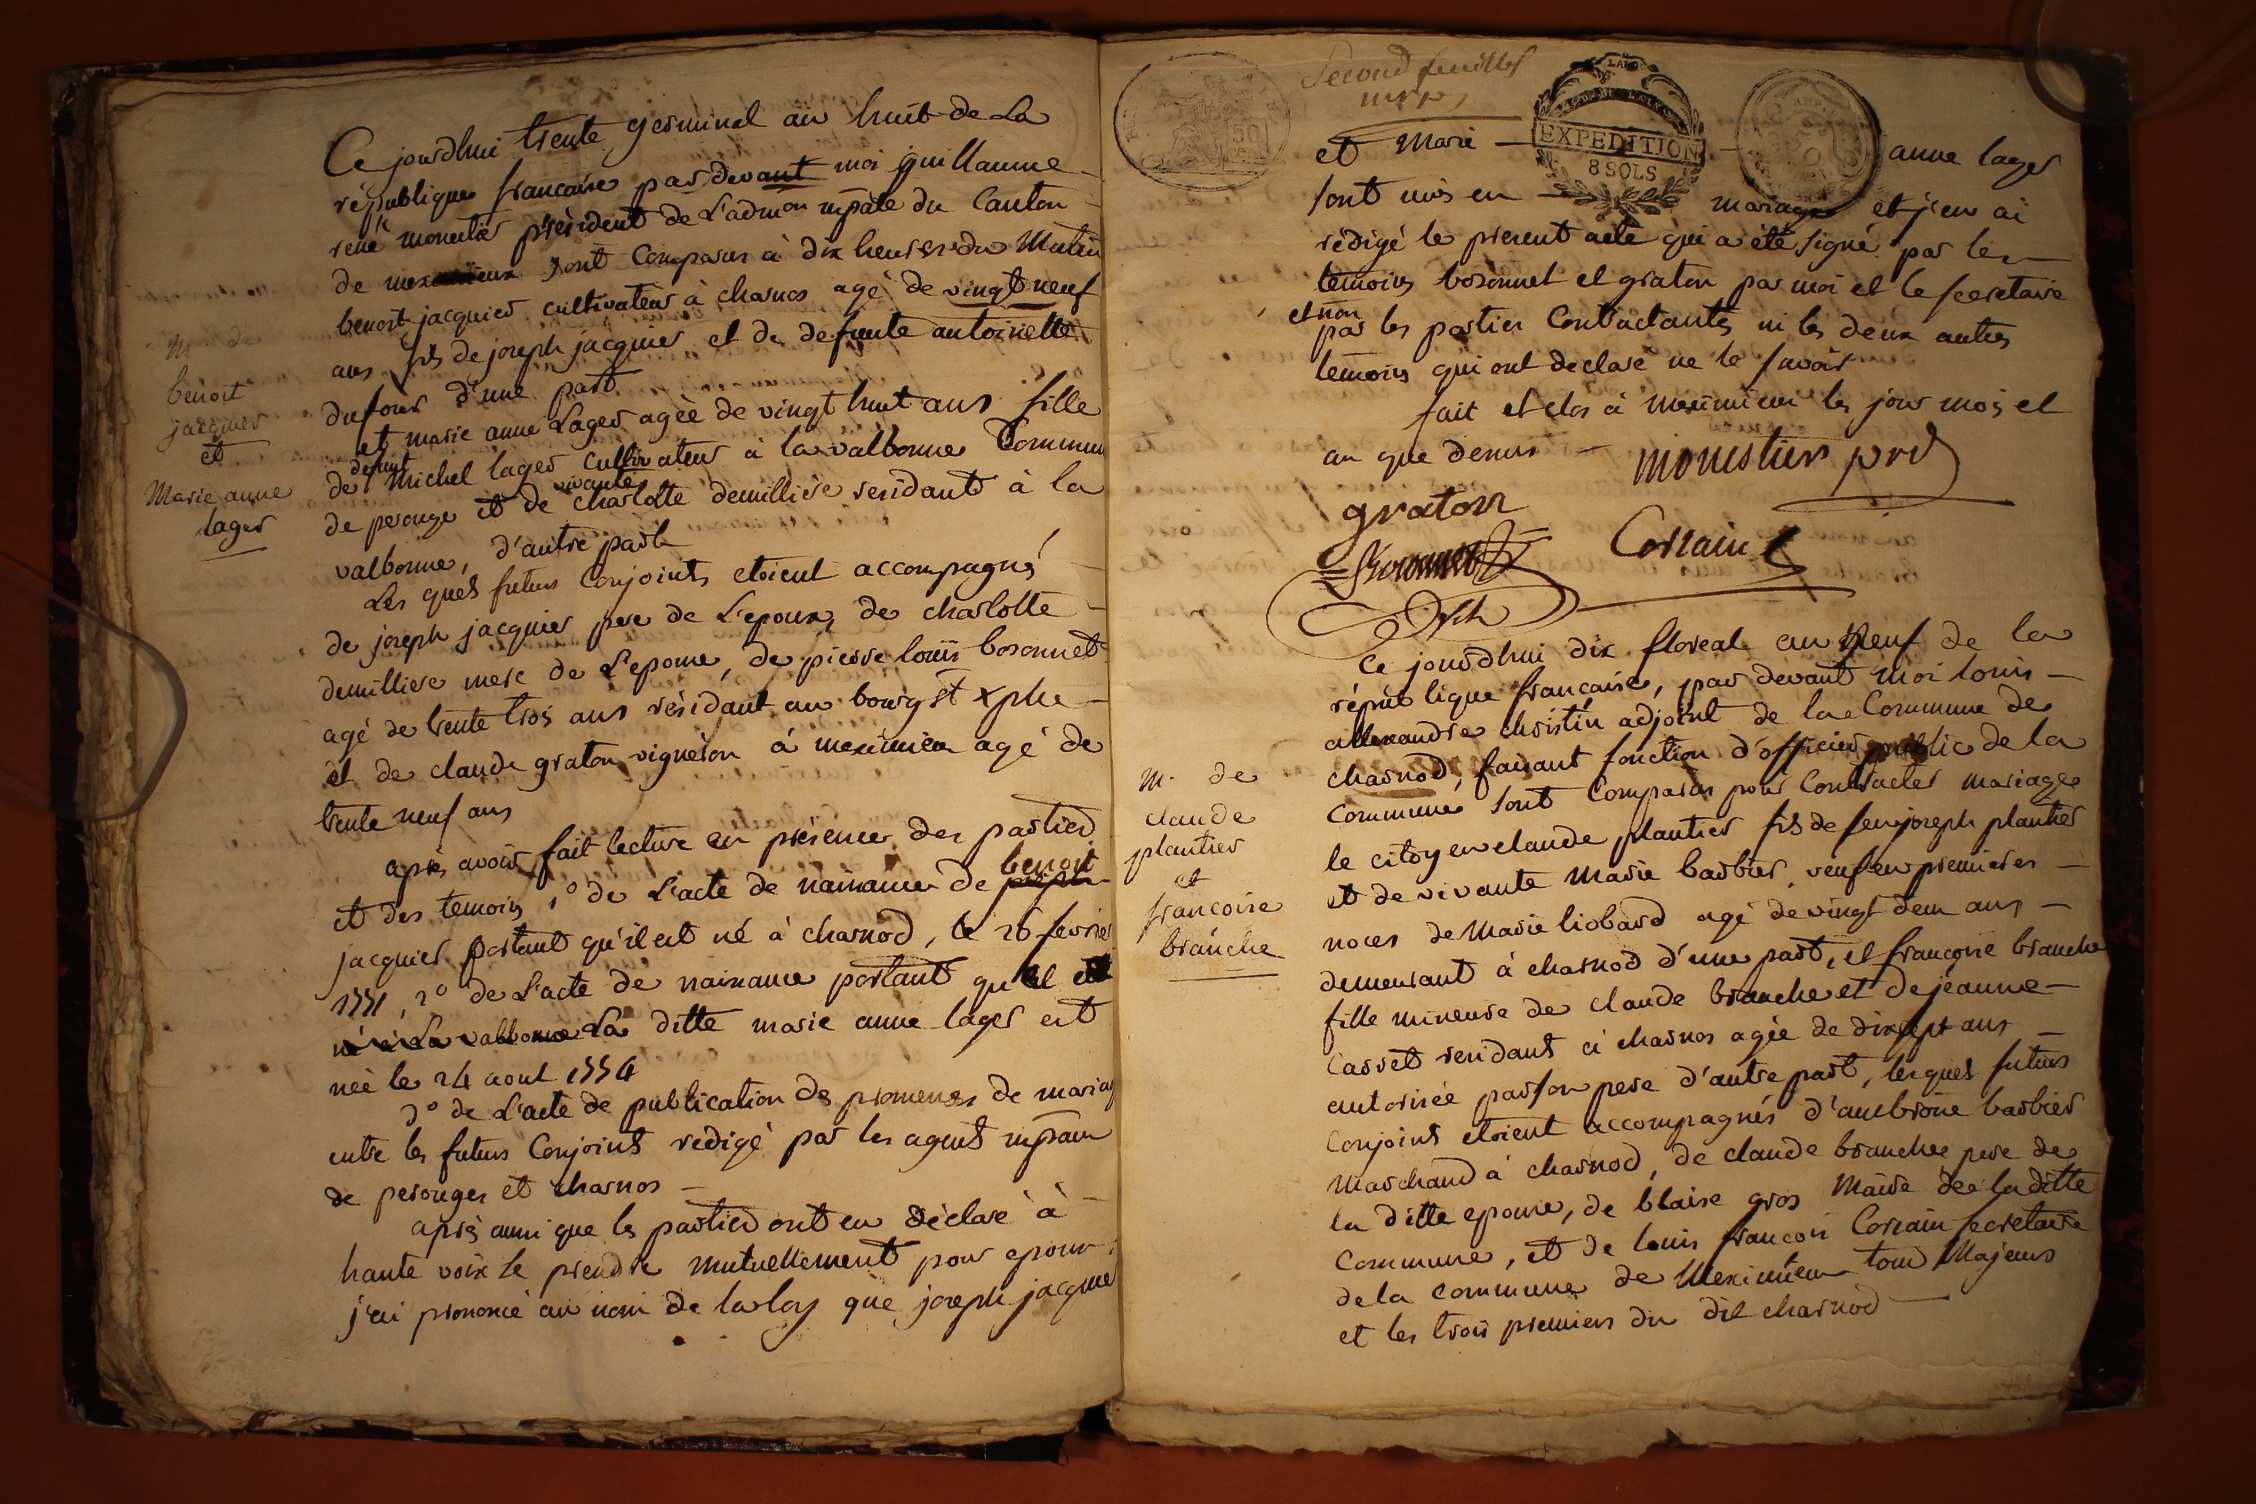 Ce jourdhui trente germinal an huit de La
république francaise par devant moi guillaume
rené monestier président de L'admon mpale du Canton
de meximieux sont Comparus à dix heures du Matin
benoit jacquier cultivateur à charnos agé de vingt neuf
ans fils de joseph jacquier et de defunte antoinette
dufour d'une part
et marie anne Lager agée de vingt huit ans fille
defunt
de Michel lager cultivateur à la valbonne Commune
vivante
de perouge et de charlotte demilliere residant à la
valbonne, d'autre part
Les quels futurs Conjoints etoient accompagnés
de joseph jacquier pere de L'epoux, de charlotte
demilliere mere de L'epouse, de pierre louis bosonnet
agé de trente trois ans résidant au bourg st xphe
et de claude graton vigneron à meximieu agé de
trente neuf ans
après avoir fait lecture en présence des parties
benoit
et des temoins 1° de L'acte de naissance de joseph
jacquier portant qu'il est né à charnod, le 26 fevrier
1771, 2° de L'acte de naissance portant qu'el est
né à La valbonne La ditte marie anne lager est
née le 24 aout 1774
3° de L'acte de publication de promesses de mariage
entre les futurs Conjoints redigé par les agents mpaux
de perouges et charnos
après aussi que les parties ont eu déclaré à
haute voix se prendre mutuellement pour epoux
j'ai prononcé au nom de la loy que joseph jacquier
m de
benoit
jacquier
et
Marie anne
lager
Second feuillet
EXPEDITION
8 SOLS
et Marie anne lager
sont unis en mariage et j'en ai
rédigé le present acte qui a été signé par les
temoins bosonnet et graton par moi et le secretaire
et non
par les parties Contractantes ni les deux autres
temoins qui ont declaré ne le savoir
fait et clos à meximieu les jour mois et
an que dessus
monestier prd
graton
Bosonnet
Corrain
Ce jourdhui dix floreal an neuf de la
république francaise, par devant moi louis
allexandre christin adjoint de la Commune de
charnod, faisant fonction d'officier public de la
Commune sont Comparus pour Contracter mariage
le citoyen claude plantier fils de feu joseph plantier
et de vivante Marie barbier, veuf en premieres
noces de Marie liobard agé de vingt deux ans
demeurant à charnod d'une part, et francoise branche
fille mineure de claude branche et de jeanne
Carret residant à charnos agée de dix sept ans
autorisée par son pere d'autre part, lesquels futurs
Conjoints etoient accompagnés d'ambroise barbier
Marchand à charnod, de claude branche pere de
la ditte epouse, de blaise gros Maire de la ditte
Commune, et de louis francois Corrain secretaire
de la commune de Meximieu tous Majeurs
et les trois premiers du dit charnod
m. de
claude
plantier
et
francoise
branche